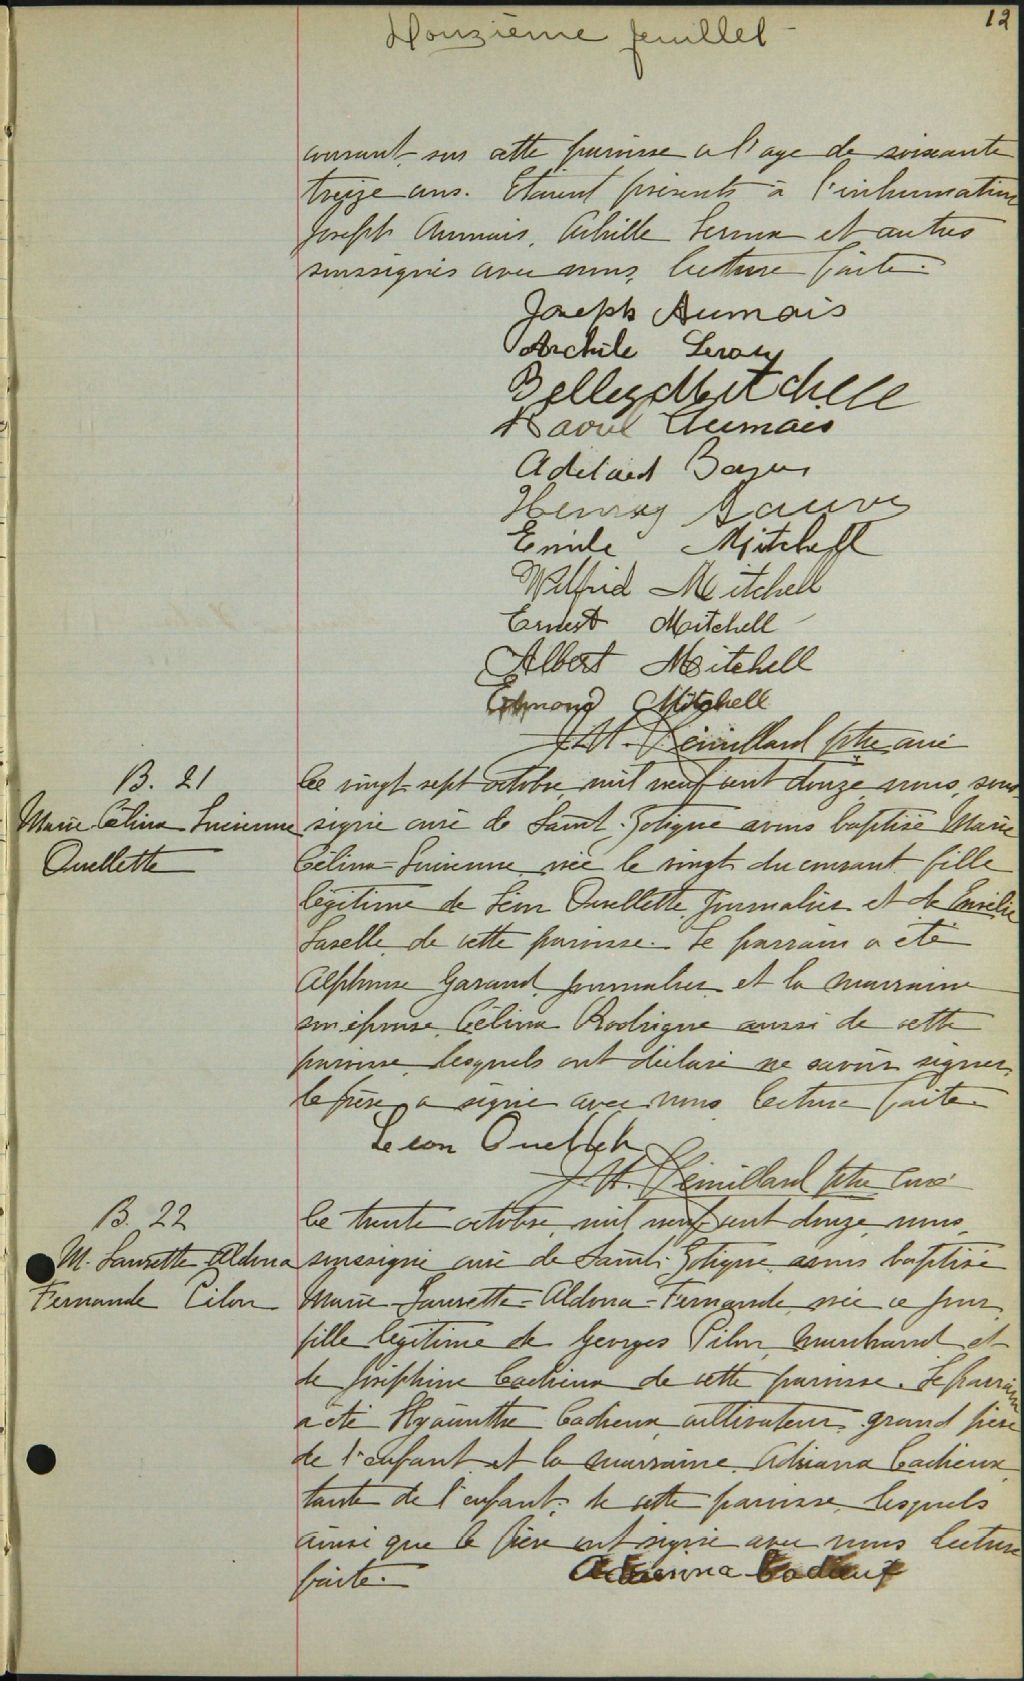 12
Douzième feuillet
courant, sur cette paroisse a l'age de soixante
treize ans. Etaient présents à l'inhumation
Joseph Aumais, Achille Leroux et autres
soussignés avec nous, lecture faite.
Joseph Aumais
Archile Leroux
Belley Mitchell
Raoul Aumais
Adelard
Henry Sauve
Emile Mitchell
Wilfrid Mitchell
Ernest Mitchell
Albert Mitchell
Edmond Mitchell
J. H. Rémillard ptre curé
B. 21
Marie Célina Lucienne
Ouellette
Ce vingt-sept octobre, mil neuf cent douze, nous, sous-
signé curé de Saint-Zotique avons baptisé Marie
Célina-Lucienne née le vingt du courant, fille
légitime de Léon Ouellette, journalier et de Emélie
Laselle, de cette paroisse. Le parrain a été
Alphonse Garand, journalier et la marraine
son épouse, Célina Rodrigue aussi de cette
paroisse, lesquels ont déclaré ne savoir signer,
le père a signé avec nous lecture faite.
Leon Ouellette
J. H. Rémillard ptre curé
B. 22
M. Laurette Aldona
Fernande Pilon
Ce trente octobre, mil neuf cent douze, nous,
soussigné curé de Saint-Zotique avons baptisé
Marie-Laurette-Aldona-Fernande, née ce jour,
fille légitime de Georges Pilon, marchand et
de Joséphine Cadieux de cette paroisse. Le parrain
a été Hyacinthe Cadieux, cultivateur, grand père
de l'enfant et la marraine, Adriana Cadieux,
tante de l'enfant, de cette paroisse, lesquels
ainsi que le père ont signé avec nous lecture
faite.
Adrienna Cadieux